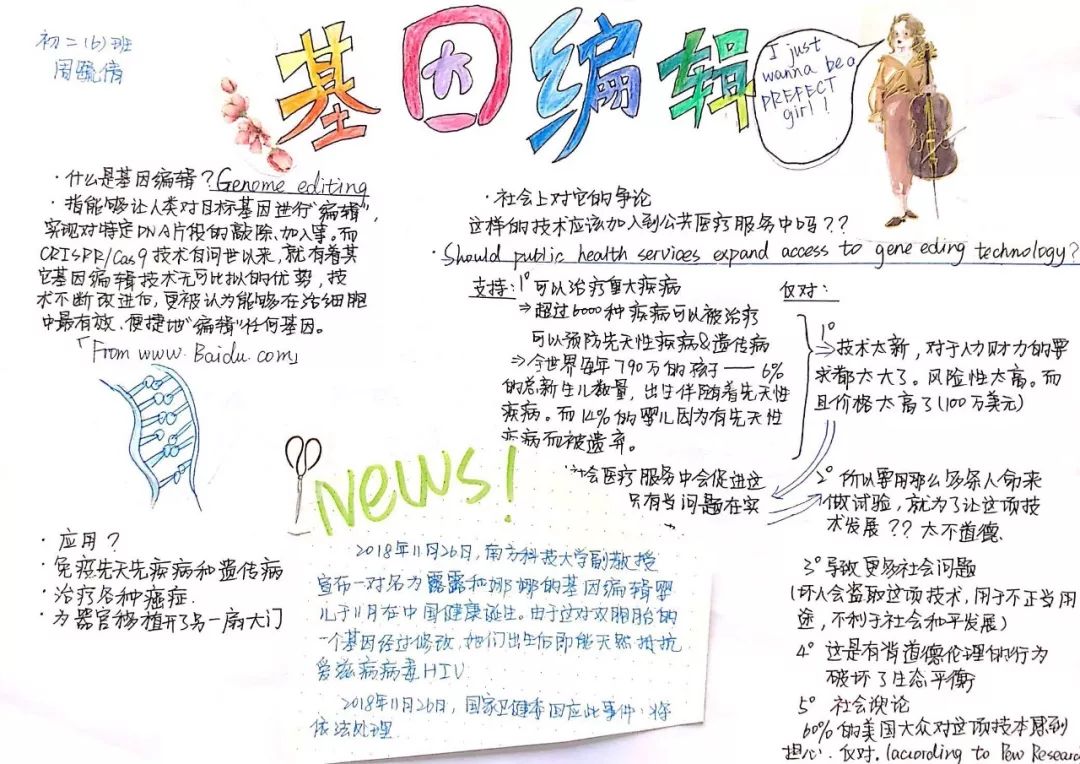 初二(6)班
周毓倩
基因编辑
I just
wanna be a
PREFECT
girl!
·什么是基因编辑？Genome editing
·指能够让人类对目标基因进行"编辑"，
实现对特定DNA片段的敲除、加入等。而
CRISPR/Cas9技术自问世以来，就有着其
它基因编辑技术无可比拟的优势，技
术不断改进后，更被认为能够在活细胞
中最有效、便捷地"编辑"任何基因。
「From www.Baidu.com」
·应用？
·免疫先天先疾病和遗传病
·治疗各种癌症.
·为器官移植开了另一扇大门
News!
2018年11月26日，南方科技大学副教授
宣布一对名为露露和娜娜的基因编辑婴
儿于11月在中国健康诞生。由于这对双胞胎的
一个基因经过修改，她们出生后即能天然抵抗
爱滋病病毒HIV
2018年11月26日，国家卫健委回应此事件：将
依法处理
·社会上对它的争论
这样的技术应该加入到公共医疗服务中吗？？
·Should public health services expand access to gene eding technology?
支持：1°可以治疗重大疾病
⇒超过6000种疾病可以被治疗
可以预防先天性疾病&遗传病
⇒全世界每年790万的孩子——6%
的总新生儿数量，出生伴随着先天性
疾病。而14%的婴儿因为有先天性
疾病而被遗弃。
社会医疗服务中会促进这
只有当问题在实
反对：
1°
技术太新，对于人力财力的要
求都太大了。风险性太高。而
且价格太高了(100万美元)
2°所以要用那么多条人命来
做试验，就为了让这项技
术发展？？太不道德.
3°导致更多社会问题
(坏人会盗取这项技术，用于不正当用
途，不利于社会和平发展)
4°这是有背道德伦理的行为
破坏了生态平衡
5°社会舆论
60%的美国大众对这项技术感到
担心、反对.(according to Pew Researc